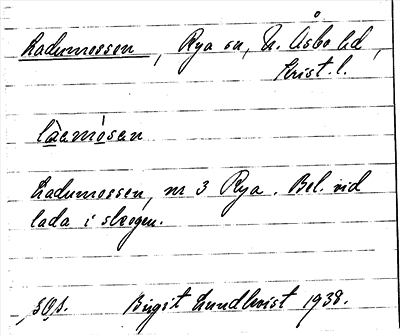 Ladumossen, Rya sn, N. Åsbo hd,
Krist. l.
Ladumossen, nr 3 Rya. Bel. vid
lada i skogen.
Birgit Lundkvist 1938.